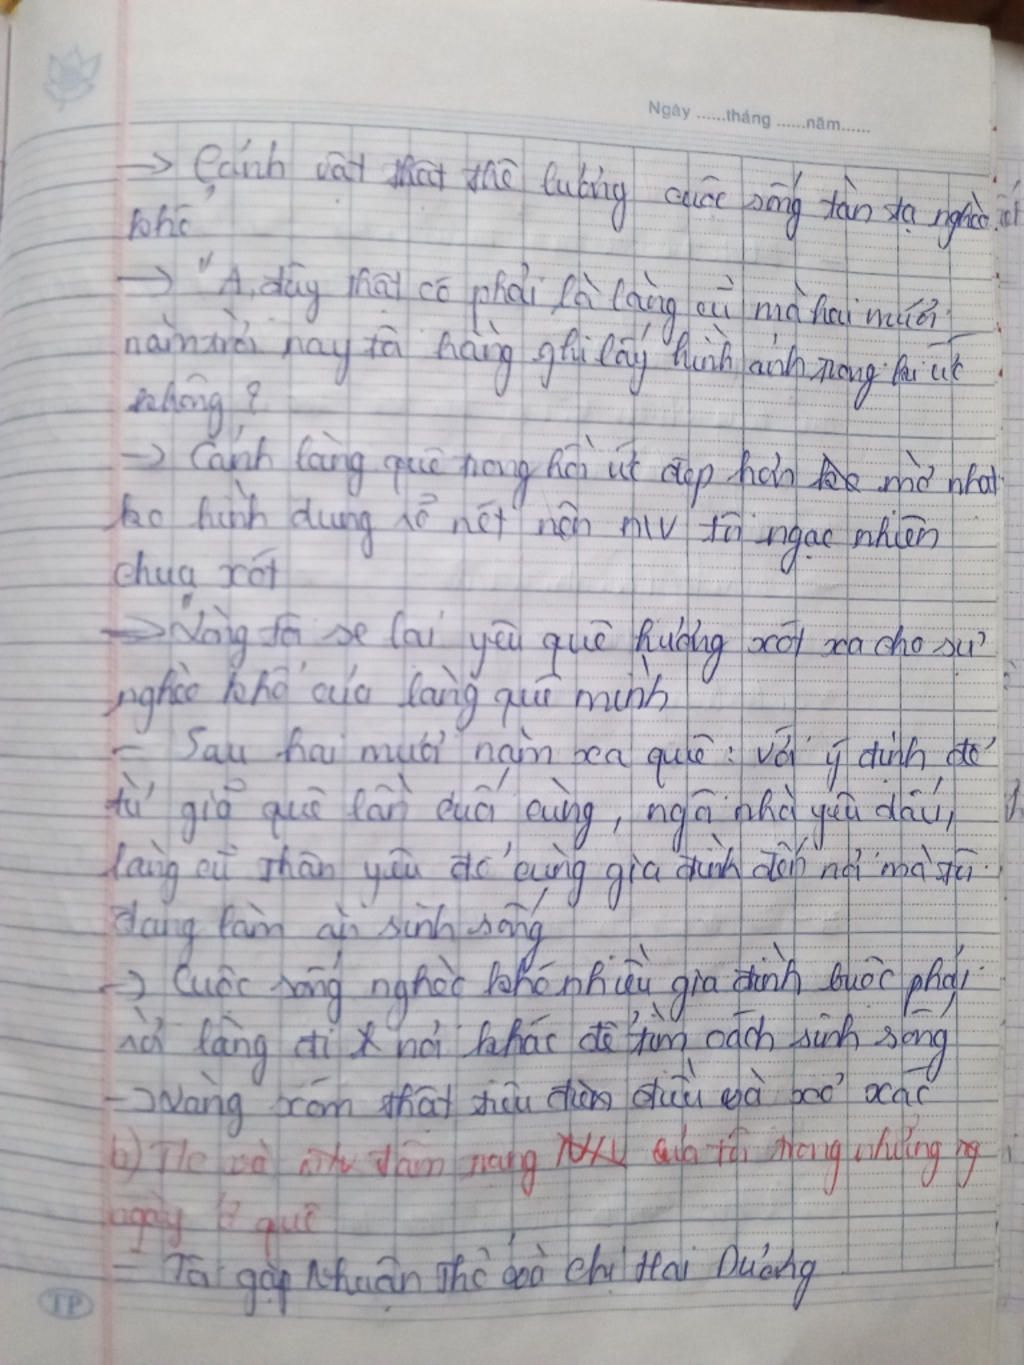 Ngày ......tháng ......năm......
→ Cảnh vật thật thê lương cuộc sống tàn tạ nghèo
khổ
→ "A, đây thật có phải là làng cũ mà hai mươi
năm trời nay tôi hằng ghi lấy hình ảnh trong kí ức
không?
→ Cảnh làng quê trong hồi ức đẹp hơn mờ nhạt
ko hình dung rõ nét nên NV tôi ngạc nhiên
chua xót
→ "Lòng tôi se lại yêu quê hương xót xa cho sự
nghèo khổ của làng quê mình
- Sau hai mươi năm xa quê: với ý định để
từ giã quê lần cuối cùng, ngôi nhà yêu dấu,
làng cũ thân yêu để cùng gia đình đến nơi mà tôi
đang làm ăn sinh sống
→ Cuộc sống nghèo khổ nhiều gia đình buộc phải
rời làng đi nơi khác để tìm cách sinh sống
→ Làng xóm thật tiêu điều và xơ xác
b) tâm trạng của tôi trong những
ngày ở quê
- Tôi gặp Nhuận Thổ và chị Hai Dương
TP